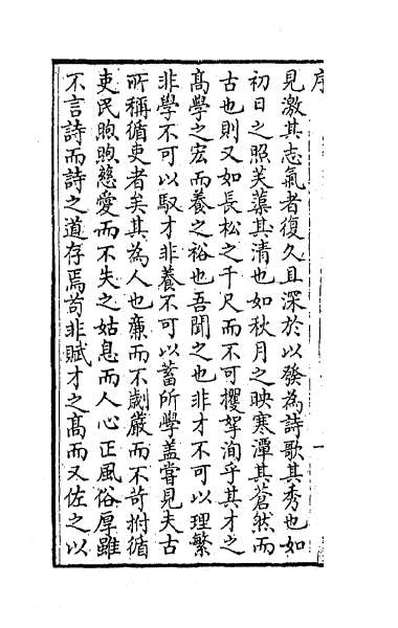 序
見激其志氣者復久且深於以發為詩歌其秀也如
初日之照芙蕖其清也如秋月之映寒潭其蒼然而
古也則又如長松之千尺而不可攖拏洵乎其才之
高學之宏而養之裕也吾聞之也非才不可以理繁
非學不可以馭才非養不可以蓄所學蓋嘗見夫古
所稱循吏者矣其為人也亷而不劌嚴而不苛拊循
吏民煦煦慈愛而不失之姑息而人心正風俗厚雖
不言詩而詩之道存焉苟非賦才之高而又佐之以